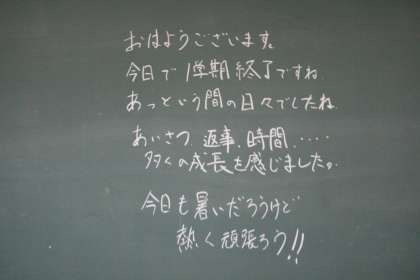 おはようございます。
今日で1学期終了ですね。
あっという間の日々でしたね。
あいさつ、返事、時間、・・・・
多くの成長を感じました。
今日も暑いだろうけど
熱く頑張ろう!!